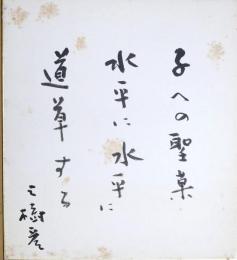 子への聖菓
水平に水平に
道草する
三樹彦